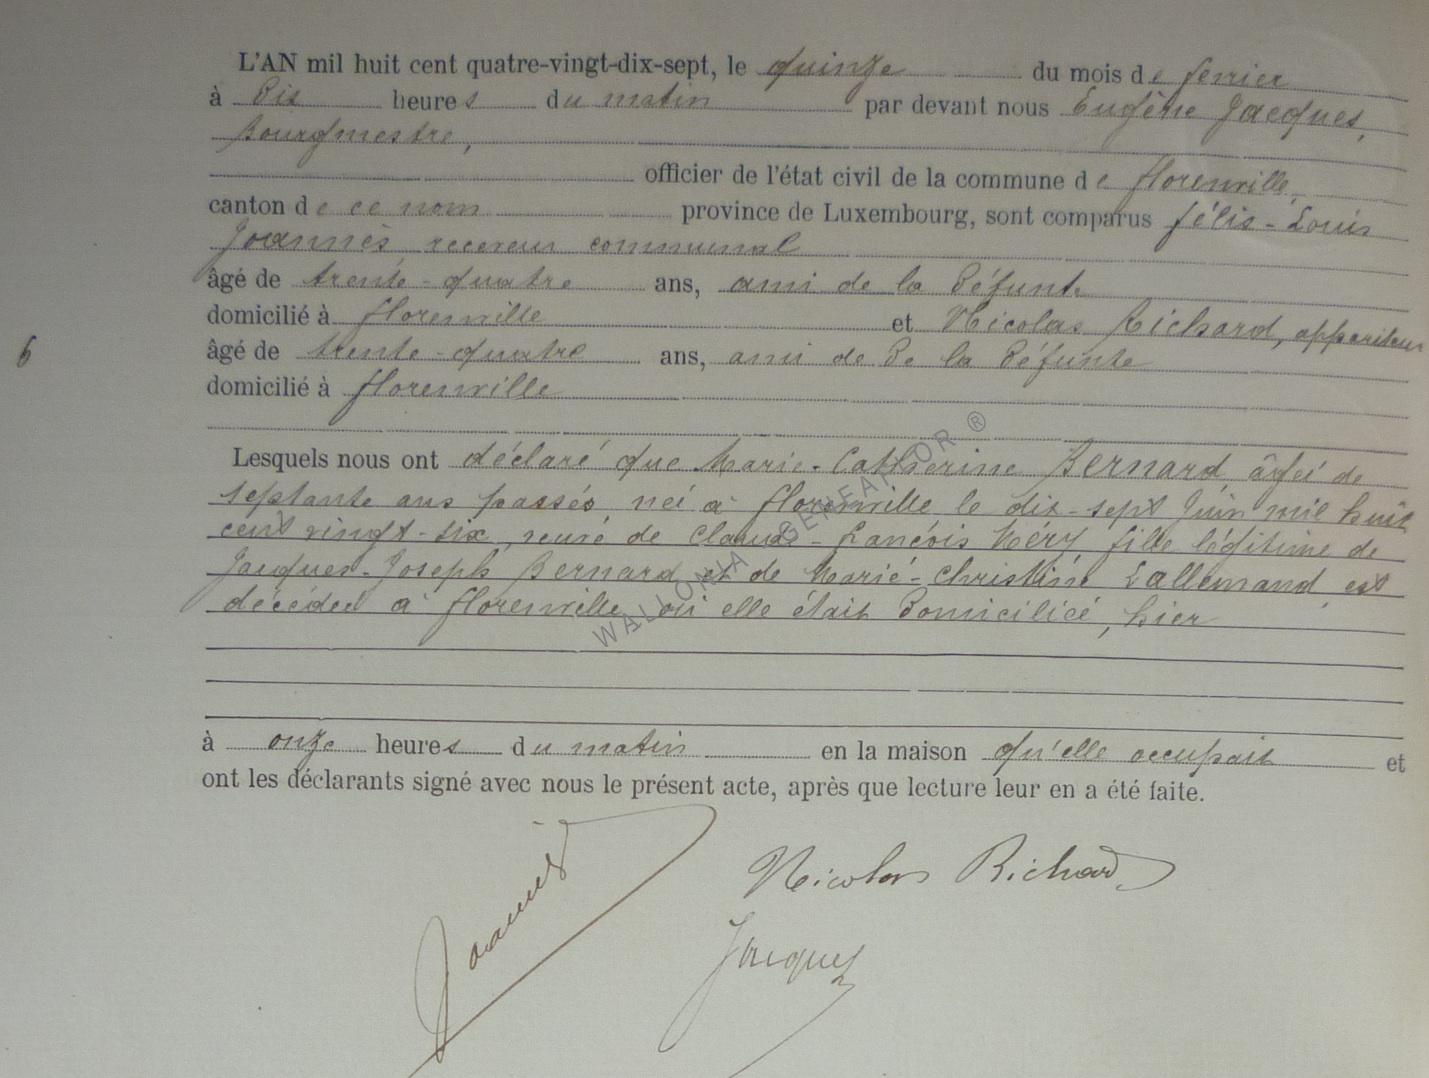 L'AN mil huit cent quatre-vingt-dix-sept, le quinze du mois de fevrier
à dix heures du matin par devant nous Eugène Jacques,
Bourgmestre,
officier de l'état civil de la commune de florenville,
canton de ce nom province de Luxembourg, sont comparus félix-Louis
Joannès receveur communal
âgé de trente-quatre ans, ami de la défunte
domicilié à florenville et Nicolas Richard, appariteur
6 âgé de trente-quatre ans, ami de de la défunte
domicilié à florenville
Lesquels nous ont déclaré que Marie-Catherine Bernard, âgeé de
septante ans passés, neé à florenville le dix-sept Juin mil huit
cent vingt-six, veuve de Claude-françois Néry, fille légitime de
Jacques-Joseph Bernard et de Marie-Christine Lallemand, est
décédeé à florenville, où elle était domiciliée, hier
à onze heures du matin en la maison qu'elle occupait et
ont les déclarants signé avec nous le présent acte, après que lecture leur en a été faite.
Joannès
Nicolas Richard
Jacques
WALLONIA GENEALOR ®